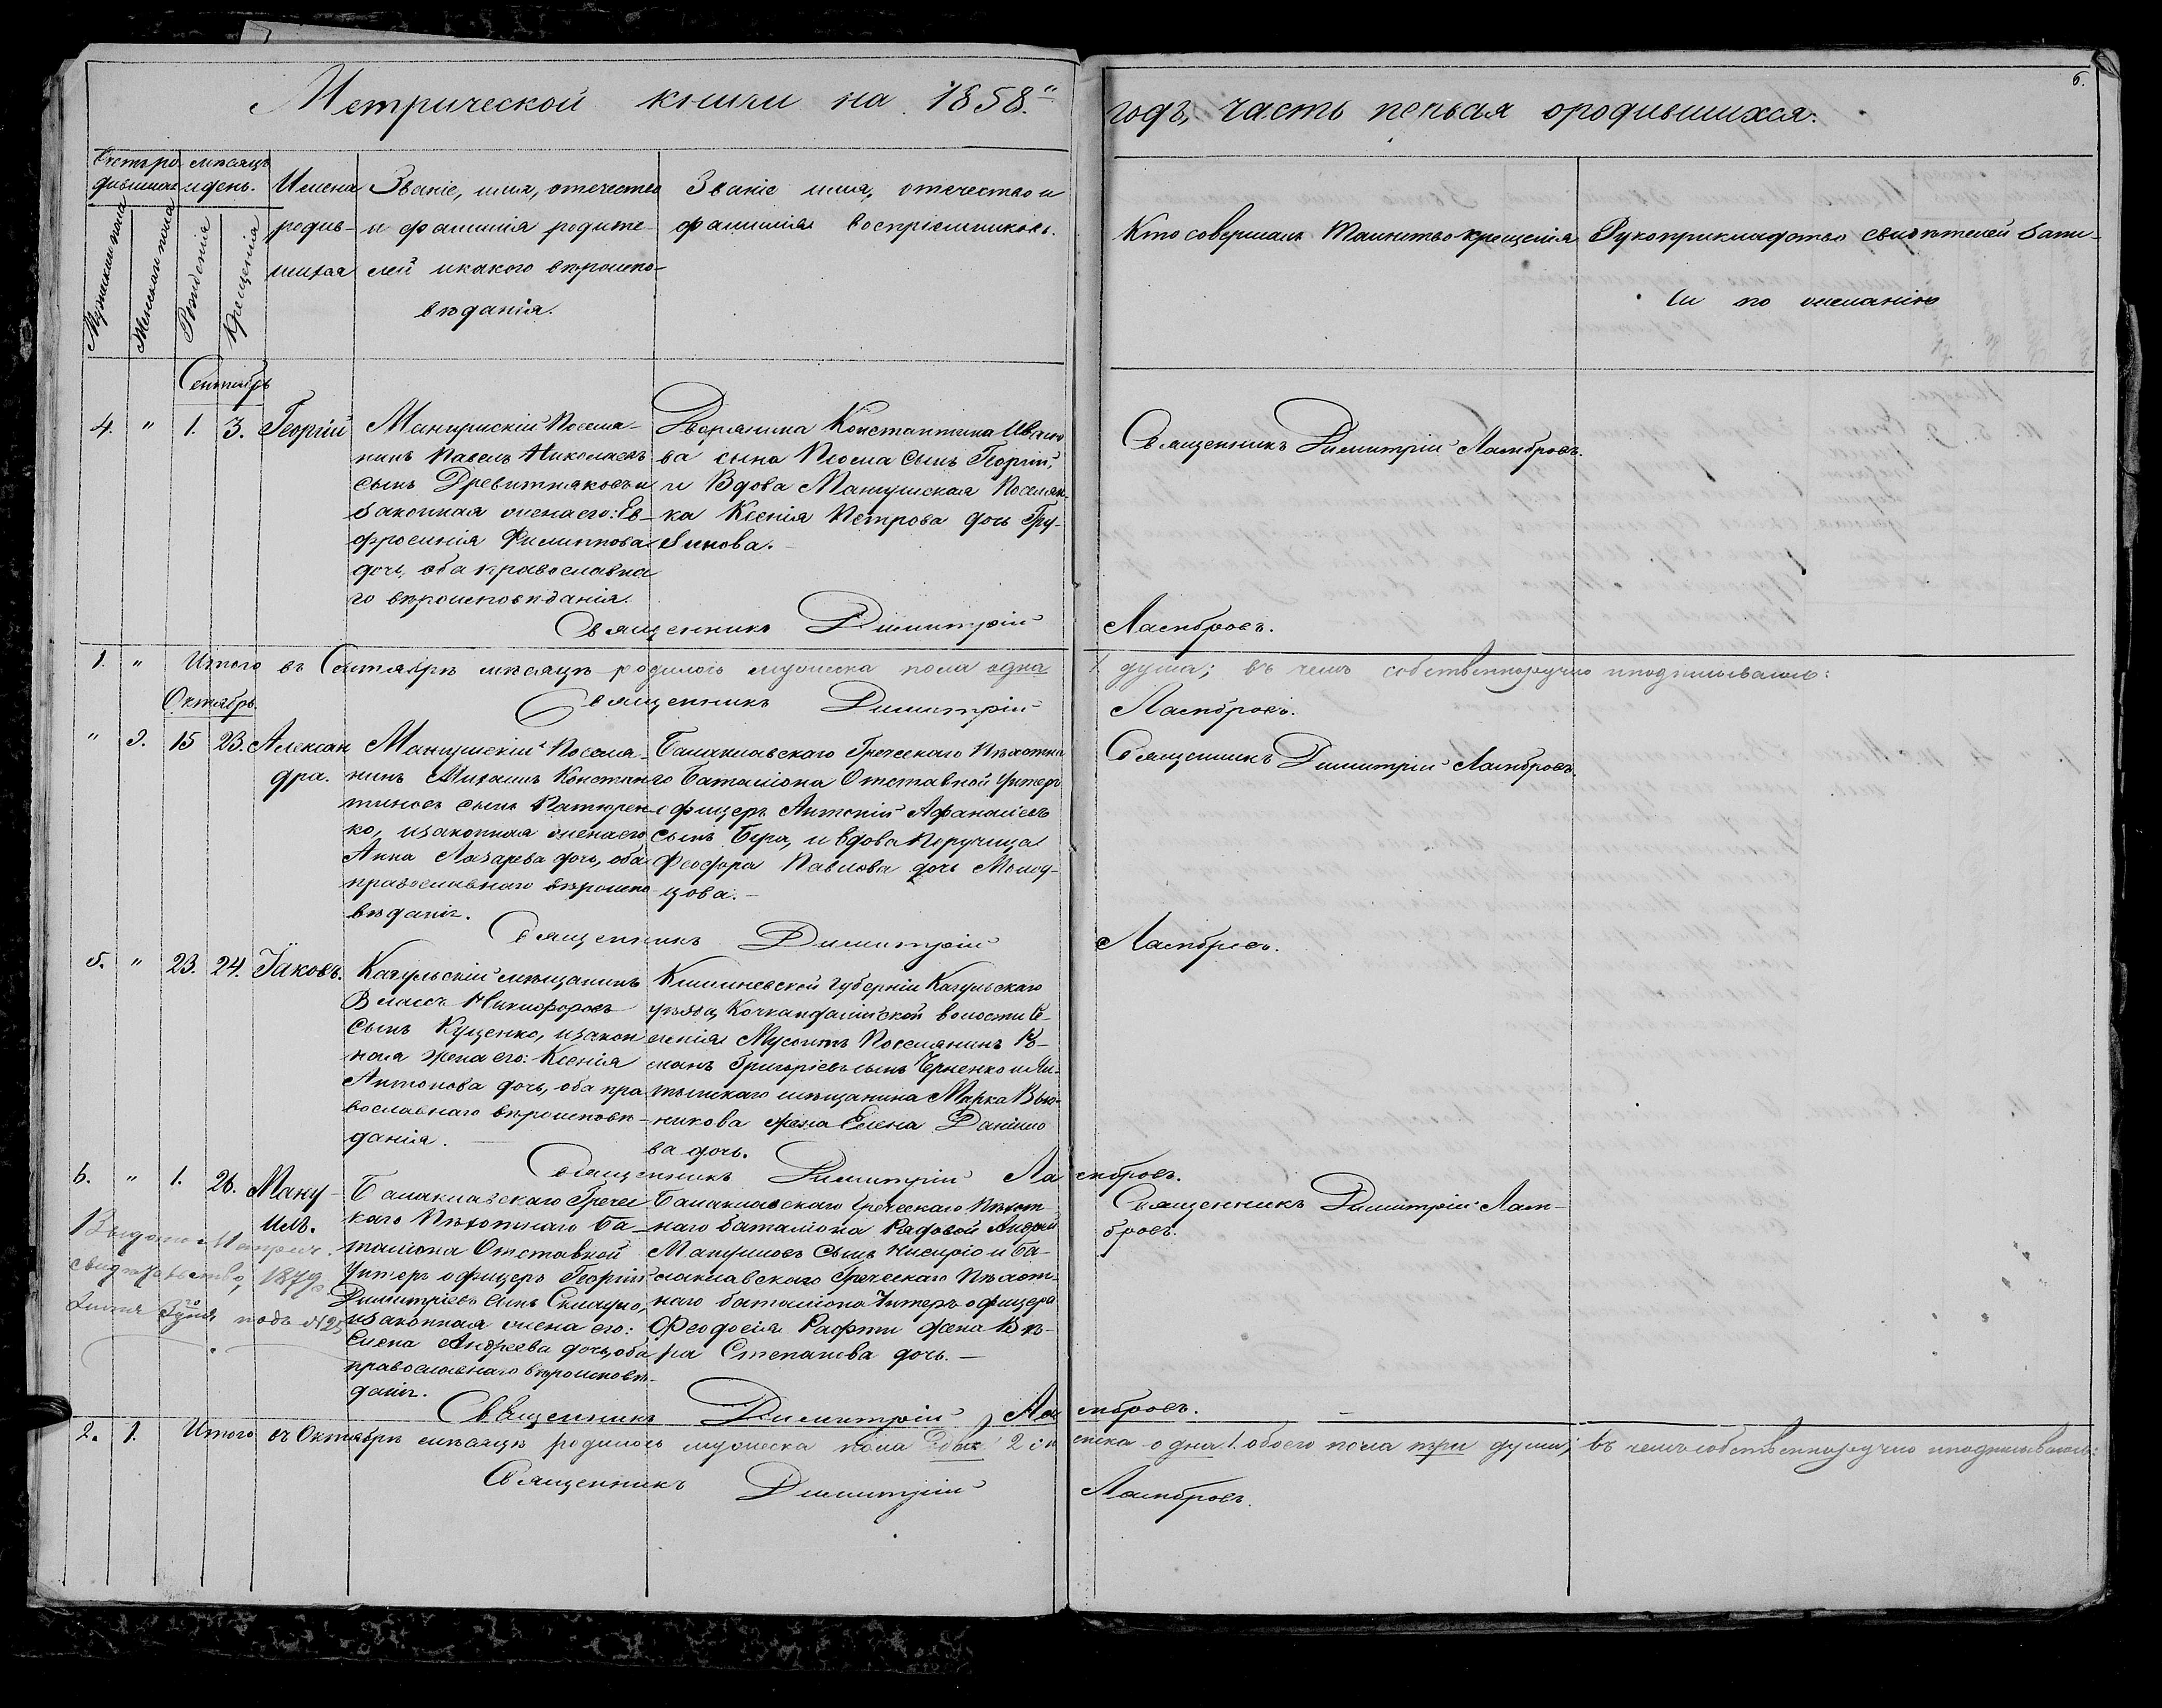 Метрической книги на 1858.й
годъ, часть первая о родившихся.
6.
Счетъ ро-
дившихся
мѣсяцъ
и день.
Мужескаго пола
Женскаго пола
Рожденія
Крещенія
Имена
родив-
шихся
Званіе, имя, отечество
и фамилія родите-
лей и какого вѣроиспо-
вѣданія.
Званіе имя, отечество и
фамилія воспріемниковъ.
Кто совершалъ таинство крещенія
Рукоприкладство свидѣтелей запи-
си по желанію
Сентябрь
4. " 1. 3. Георгій
Мангушскій Поселя-
нинъ Павелъ Николаевъ
сынъ Древитняковъ и
законная жена его: Ев-
фросинія Филиппова
дочь, оба православна
го вѣроисповѣданія.
Дворянина Константина Ивано
ва сына сынъ Георгій,
и Вдова Мангушская Поселян-
ка Ксенія Петрова дочь Гру-
зинова.
Священникъ Димитрій Ламбровъ.
Священникъ Димитрій Ламбровъ.
1. " Итого въ Сентябрѣ мѣсяцѣ родилось мужеска пола одна 1. душа; въ чемъ собственноручно и подписываюсь:
Священникъ Димитрій Ламбровъ.
Октябрь.
" 3. 15 23. Алексан
дра.
Мангушскій Поселя-
нинъ Михаилъ Констан-
тиновъ сынъ
ко, и законная жена его
Анна Лазарева дочь, оба
православнаго вѣроиспо
вѣданія.
Балаклавскаго Греческаго Пѣхотна
го Баталіона Отставной Унтеръ
офицеръ Афанасіевъ
сынъ и вдова Поручица
Феодора Павлова дочь Молод-
цова.
Священникъ Димитрій Ламбровъ.
Священникъ Димитрій Ламбровъ.
5. " 23. 24. Іаковъ.
Кагульскій мѣщанинъ
Власъ Никифоровъ
сынъ Куценко, и закон
ная жена его: Ксенія
Антонова дочь, оба пра
вославнаго вѣроисповѣ-
данія.
Кишиневской Губерніи Кагульскаго
уѣзда, волости Се-
ленія Мусаитъ Поселянинъ Ро-
манъ Григоріевъ сынъ Черненко и
мѣщанина Марка
никова жена Елена Данило
ва дочь.
Священникъ Димитрій Ламбровъ.
6. " 1. 26. Ману-
илъ.
Выдано Метрич.
свидѣтельство, 1879
подъ №25
Балаклавскаго Гречес
каго Пѣхотнаго Ба-
таліона Отставной
Унтеръ офицеръ Георгій
Димитріевъ сынъ
и законная жена его:
Елена Андреева дочь, оба
православнаго вѣроисповѣ-
данія.
Балаклавскаго Греческаго Пѣхот
наго баталіона Рядовой Андрей
Мануиловъ сынъ и Ба-
лаклавскаго Греческаго Пѣхот-
наго баталіона Унтеръ офицера
Феодосія Рафти жена Вѣ-
ра Степанова дочь.
Священникъ Димитрій Лам-
бровъ.
Священникъ Димитрій Ламбровъ.
2. 1. Итого въ Октябрѣ мѣсяцѣ родилось мужеска пола двѣ 2 женска одна 1. обоего пола три души; въ чемъ собственноручно и подписываюсь:
Священникъ Димитрій Ламбровъ.